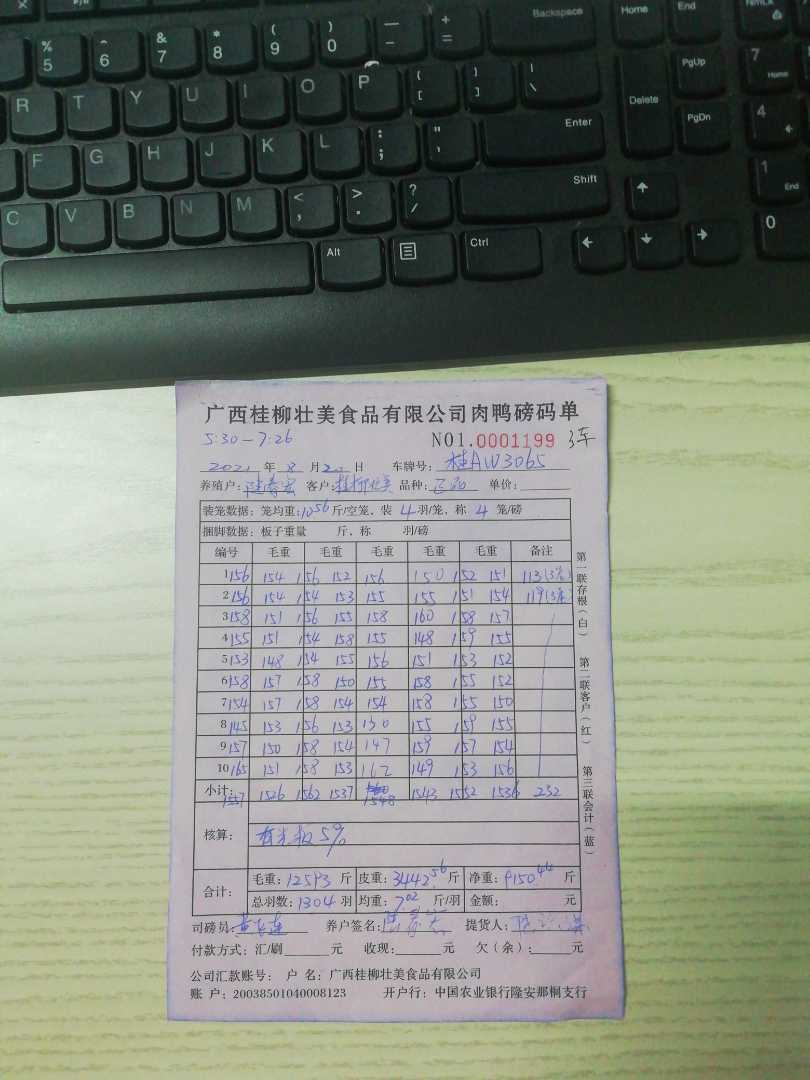 % 5 ^ 6 & 7 * 8 ( 9 ) 0 — - + = Backspace Home End NmLk
R T Y U I O P { [ } ] | \ Delete PgUp 7 Home
F G H J K L : ; " ' Enter PgDn 4
C V B N M < , > . ? / Shift 1 End
Alt Ctrl 0
广西桂柳壮美食品有限公司肉鸭磅码单
5:30-7:26 NO1.0001199 3车
2021年8月20日 车牌号:桂AW3065
养殖户: 客户:桂柳壮美 品种:正品 单价:
装笼数据:笼均重:10.56斤/空笼、装4羽/笼,称4笼/磅
捆脚数据:板子重量 斤,称 羽/磅
编号 毛重 毛重 毛重 毛重 毛重 备注
1 156 154 156 152 156 150 152 151 113(3笼)
2 156 154 154 153 155 155 151 154 119(3笼)
3 158 151 156 155 158 160 158 157
4 155 151 154 158 155 148 159 155
5 153 148 154 155 156 151 153 152
6 158 157 158 150 155 158 155 152
7 154 157 158 154 154 158 155 150
8 145 153 156 153 150 155 159 155
9 157 150 158 154 147 159 157 154
10 165 151 158 153 162 149 153 156
小计: 1557 1526 1562 1537 1548 1543 1552 1536 232
核算: 5%
合计: 毛重:12593斤 皮重:3442.56斤 净重:9150.44斤
总羽数:1304羽 均重:7.02斤/羽 金额: 元
司磅员: 养户签名: 提货人:
付款方式:汇/刷 元 收现: 元 欠(余): 元
公司汇款账号: 户 名:广西桂柳壮美食品有限公司
账 户:20038501040008123 开户行:中国农业银行隆安那桐支行
第一联存根(白)
第二联客户(红)
第三联会计(蓝)